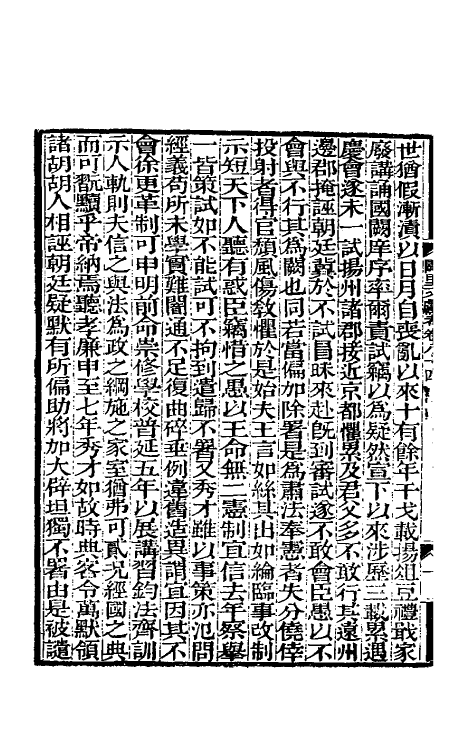 世猶假漸漬以日月自喪亂以來十有餘年干戈載揚俎豆禮戢家
廢講誦國闕庠序率爾責試竊以為疑然宣下以來涉歷三載累遇
慶會遂未一試揚州諸郡接近京都懼累及君父多不敢行其遠州
邊郡掩誣朝廷冀於不試冒昧來赴旣到審試遂不敢會臣愚以不
會與不行其為闕也同若當偏加除署是為肅法奉憲者失分僥倖
投射者得官頹風傷敎懼於是始夫王言如絲其出如綸臨事改制
示短天下人聽有惑臣竊惜之愚以王命無二憲制宜信去年察舉
一皆策試如不能試可不拘到遣歸不署又秀才雖以事策亦氾問
經義苟所未學實難闇通不足復曲碎垂例違舊造異謂宜因其不
會徐更革制可申明前命崇修學校普延五年以展講習鈞法齊訓
示人軌則夫信之與法為政之綱施之家室猶弗可貳况經國之典
而可翫黷乎帝納焉聽孝廉申至七年秀才如故時典客令萬默領
諸胡胡人相誣朝廷疑默有所偏助將加大辟坦獨不署由是被譴